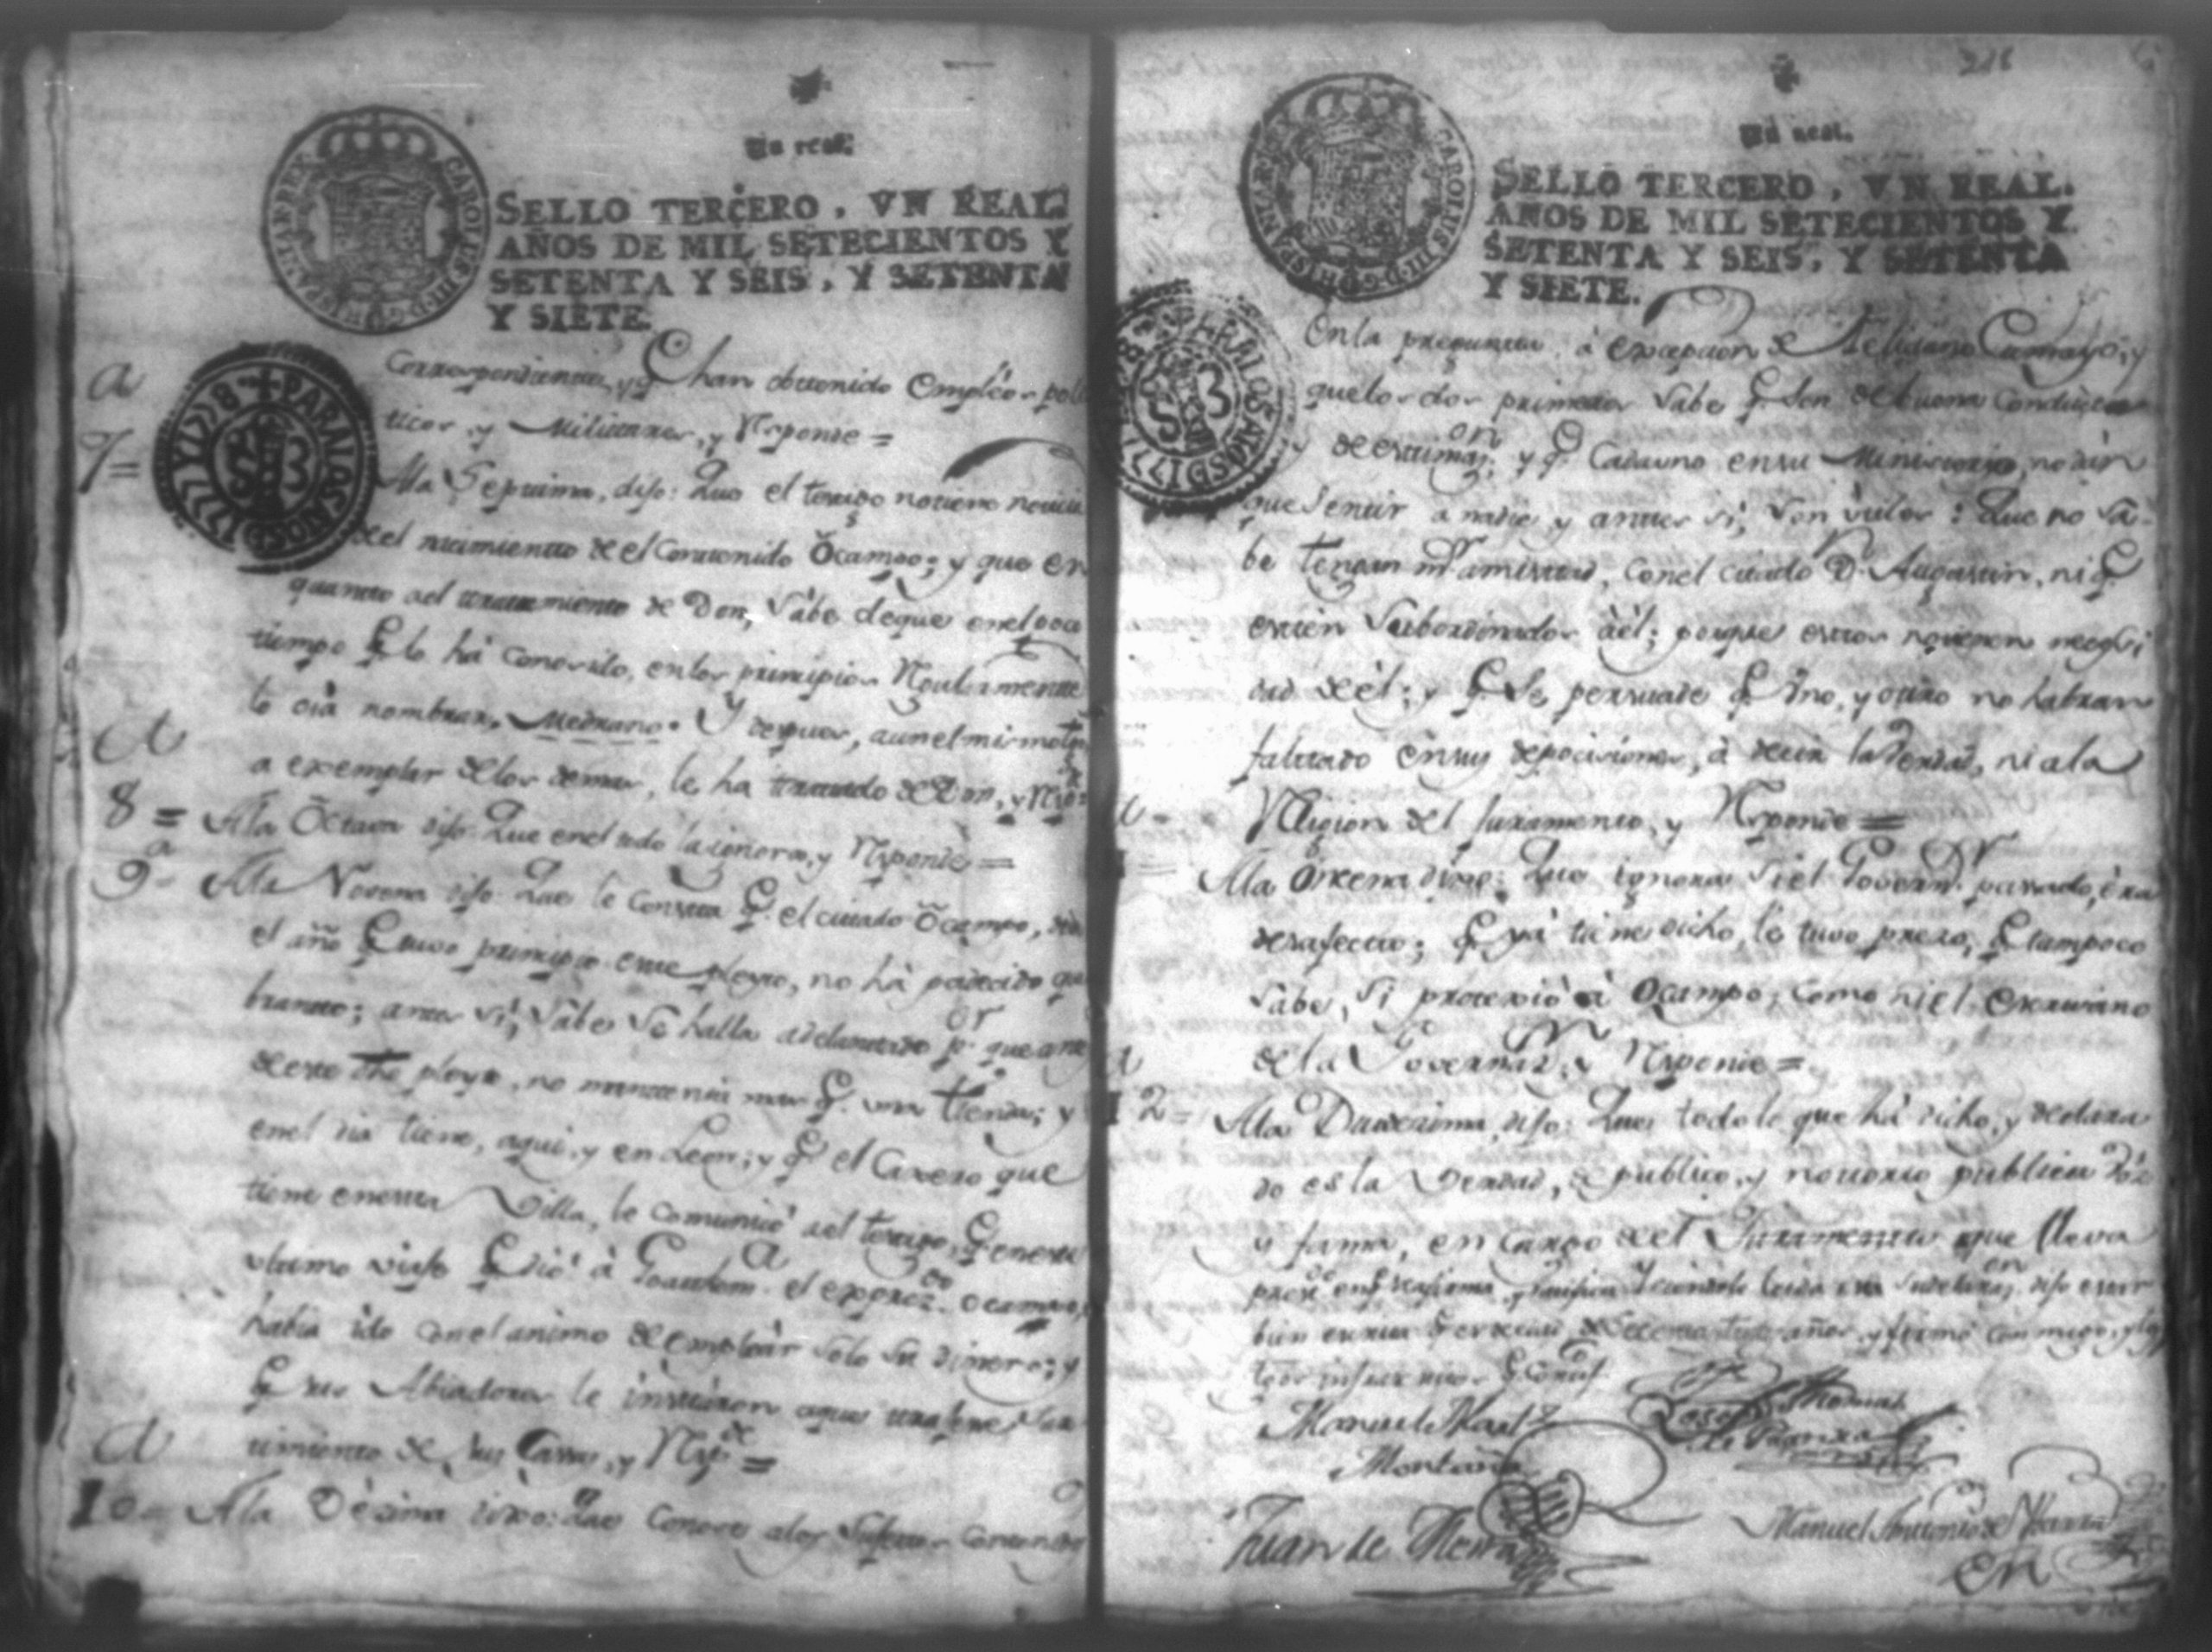 Un real.
SELLO TERCERO, VN REAL.
AÑOS DE MIL SETECIENTOS Y
SETENTA Y SEIS, Y SETENTA
Y SIETE.
CAROLUS III D G HISPANIAR REX
PARA LOS AÑOS D 1777 Y 1778
Correspondiencia, y q.e han obttenido Empleos poli
ticos, y Militares, y Rsponde =
7= A la Septima, dijo: Que el testigo no tiene noticia
de el nacimiento de el Conttenido Ocampo; y que en
quanto al trattamiento de Don, Sabe de que en el poco
tiempo q.e lo há conosido, en los principios Regularmente
lo oiá nombrar, Medrano. Y despues, aun el mismo tgo
a exemplar de los demas, le ha trattado de Don, y Rsp.de
8= A la Octava dijo Que en el todo la ignora, y Rsponde =
9a A la Novena dijo Que le Consta q.e el cittado Ocampo,
el año q.e tuvo principio este pleyto, no há padecido que
branto; antes sí, Sabe Se halla adelantado p.or que antes
de este dho pleyto, no mantenia mas q.e una tienda; y
en el dia tiene, aqui, y en Leon; y q.e el Caxero que
tiene en esta Villa, le comunicó al testigo, q.e en este
ultimo viaje q.e dió á Goattem.a el expres.do Ocampo,
habia ido con el animo de emplear solo su dinero; y
q.e sus Abiadores le instaron a que
timiento de sus Casas, y Rsp.de =
10= A la Décima dixo: Que Conoce a los Sujettos Contenidos
216
Un real.
SELLO TERCERO, VN REAL.
AÑOS DE MIL SETECIENTOS Y
SETENTA Y SEIS, Y SETENTA
Y SIETE.
CAROLUS III D G HISPANIAR REX
PARA LOS AÑOS D 1777 Y 1778
En la pregunta, á excepcion de Feliciano Camayo; y
que los dos primeros Sabe q.e Son de buena Conducta
y de estimaz.on y q.e Cada uno en su Ministerio, no dán
que Sentir a nadie y anttes sí, Son utiles: Que no Sa-
be tengan m.r amistad, con el citado D.n Augustin, ni q.e
estén Subordinados á él; porque estos no tienen necesi
dad de él; y q.e Se persuade q.e Uno, y otro no habran
faltado en sus deposiciones, á decir la Verdad, ni a la
Religion del Juramento, y Rsponde =
A la Onsena dixo: Que ignora Si el Govern.r pasado, era
desafecto; q.e yá tiene dicho, le tuvo preso; q.e tampoco
Sabe, Si protexió á Ocampo; como ni el Escrivano
de la Governaz.n y Rsponde =
12= A la Duodecima, dijo: Que todo lo que há dicho, y declara
do es la Verdad, de publico, y notorio publica vóz
y fama, en Cargo del Juramento que lleva
y firmó con migo, y los
Manuel Mart.z
Montaña
Juan de
Manuel Antonio de
en